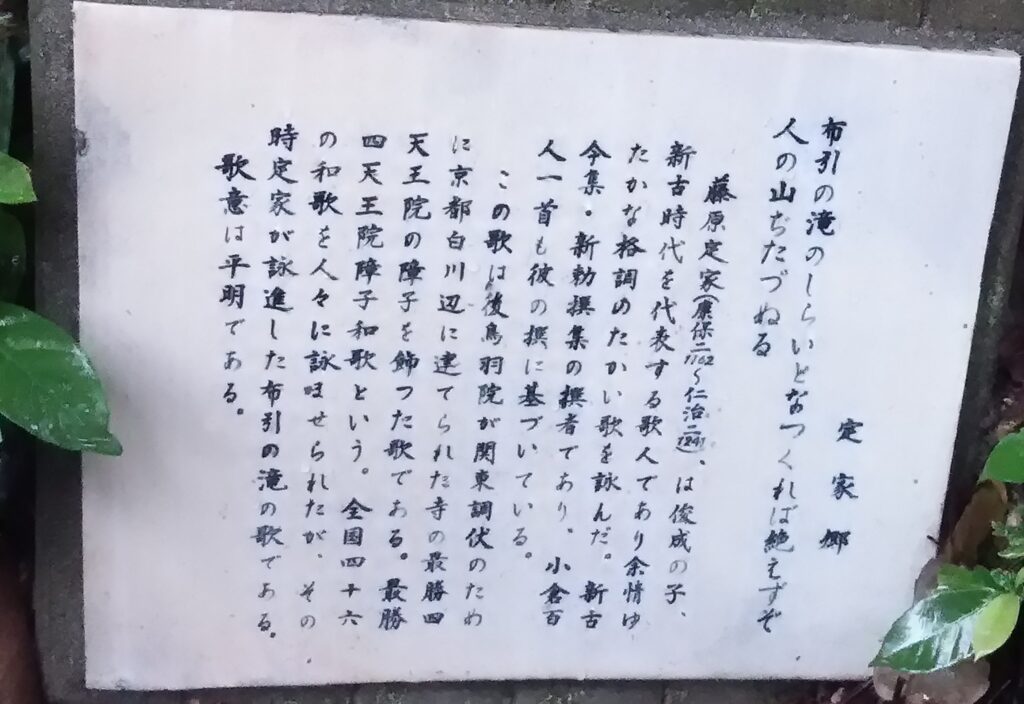 定家郷
布引の滝のしらいとなつくれば絶えずぞ
人の山ぢたづぬる
藤原定家(應保二1162〜仁治二1241)、は俊成の子、
新古時代を代表する歌人であり余情ゆ
たかな格調のたかい歌を詠んだ。新古
今集・新勅撰集の撰者であり、小倉百
人一首も彼の撰に基づいている。
この歌は後鳥羽院が関東調伏のため
に京都白川辺に建てられた寺の最勝四
天王院の障子を飾つた歌である。最勝
四天王院障子和歌という。全国四十六
の和歌を人々に詠ませられたが、その
時定家が詠進した布引の滝の歌である。
歌意は平明である。